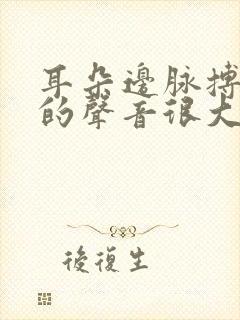 耳朵邊脉搏
的聲音很大
後復生